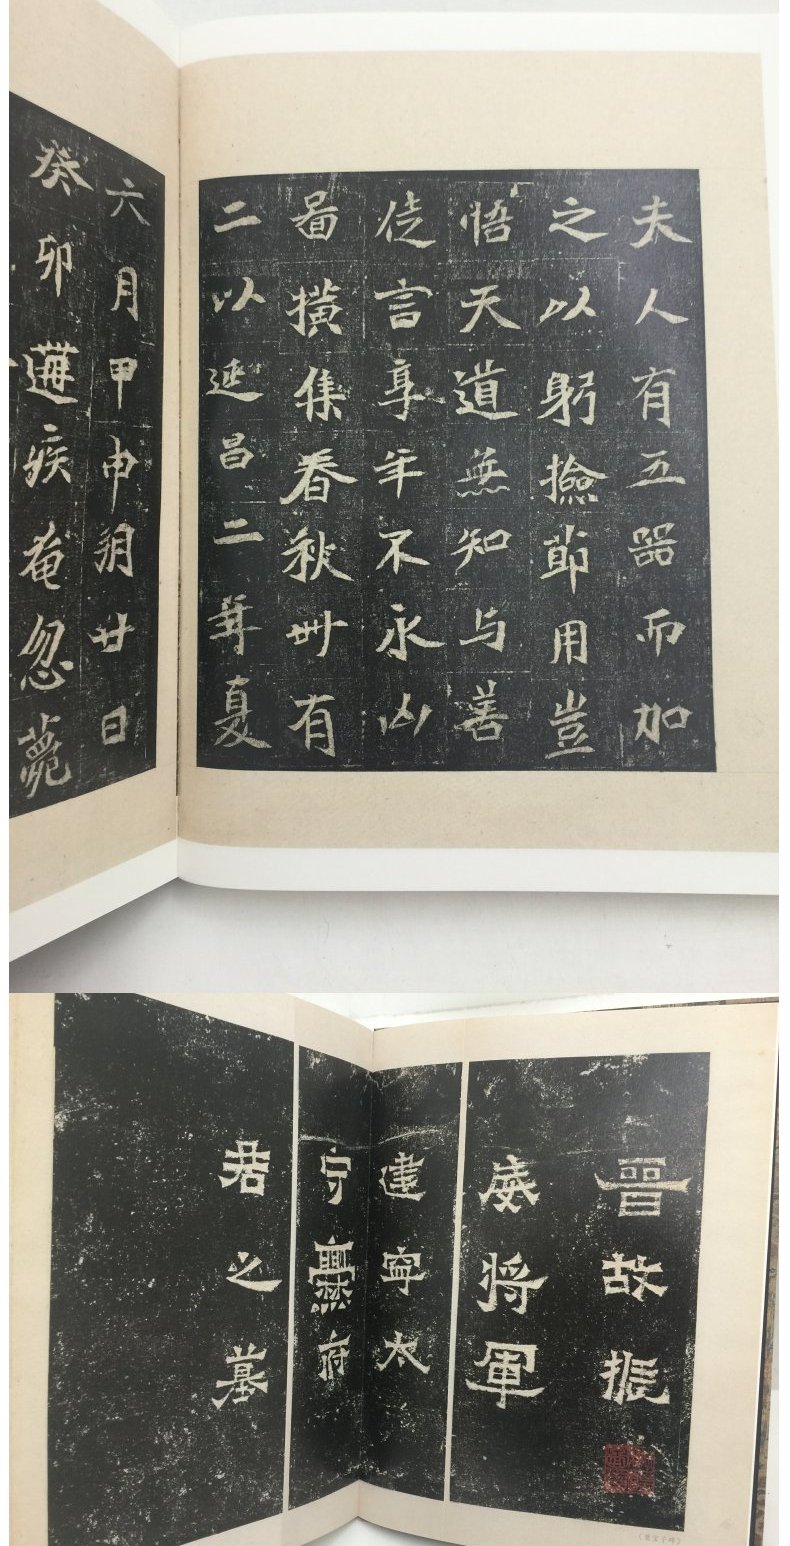 夫人有五器而加
之以躬撿節用豈
悟天道無知与善
徒言享年不永凶
啚橫集春秋卌有
二以延昌二年夏
六月甲申朔廿日
癸卯遘疾奄忽薨
晉故振
威將軍
建寧太
守爨府
君之墓
《爨宝子碑》